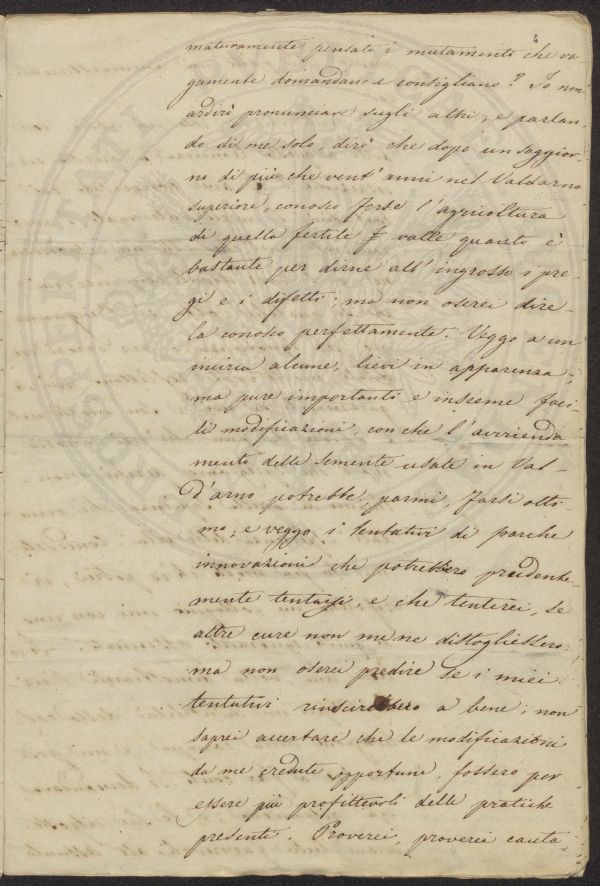 maturamente pensato i mutamenti che va
gamente domandano e consigliano? Io non
ardirò pronunciare sugli altri, e parlan-
do di me solo, dirò che dopo un soggior-
no di più che vent'anni nel Valdarno
superiore, conosco forse l'agricoltura
di quella fertile valle quanto è
bastante per dirne all'ingrosso i pre-
gi e i difetti; ma non oserei dire
la conosco perfettamente. Veggo a un
incirca alcune, lievi in apparenza,
ma pure importanti e insieme faci-
li modificazioni, con che l'avvicenda
mento delle semente usate in Val-
d'arno potrebbe, parmi, farsi otti-
mo; e veggo i tentativi di parche
innovazioni che potrebbero prudente-
mente tentarsi, e che tenterei, se
altre cure non me ne distogliessero;
ma non oserei predire se i miei
tentativi riuscirebbero a bene; non
saprei accertare che le modificazioni
da me credute opportune, fossero per
essere più profittevoli delle pratiche
presenti. Proverei, proverei cauta-